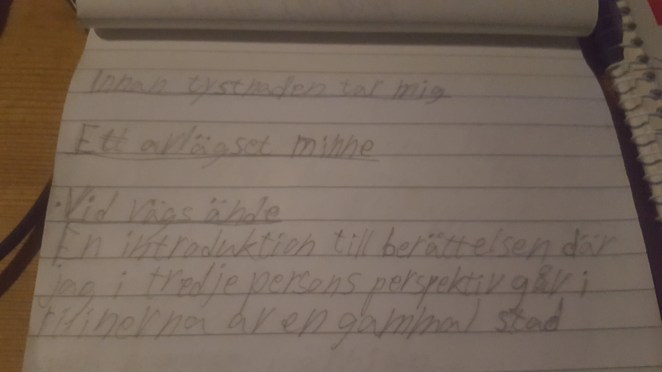 Innan tystnaden tar mig
Ett avlägset minne
·Vid vägs ände
En introduktion till berättelsen där
jag i tredje persons perspektiv går i
av en gammal stad